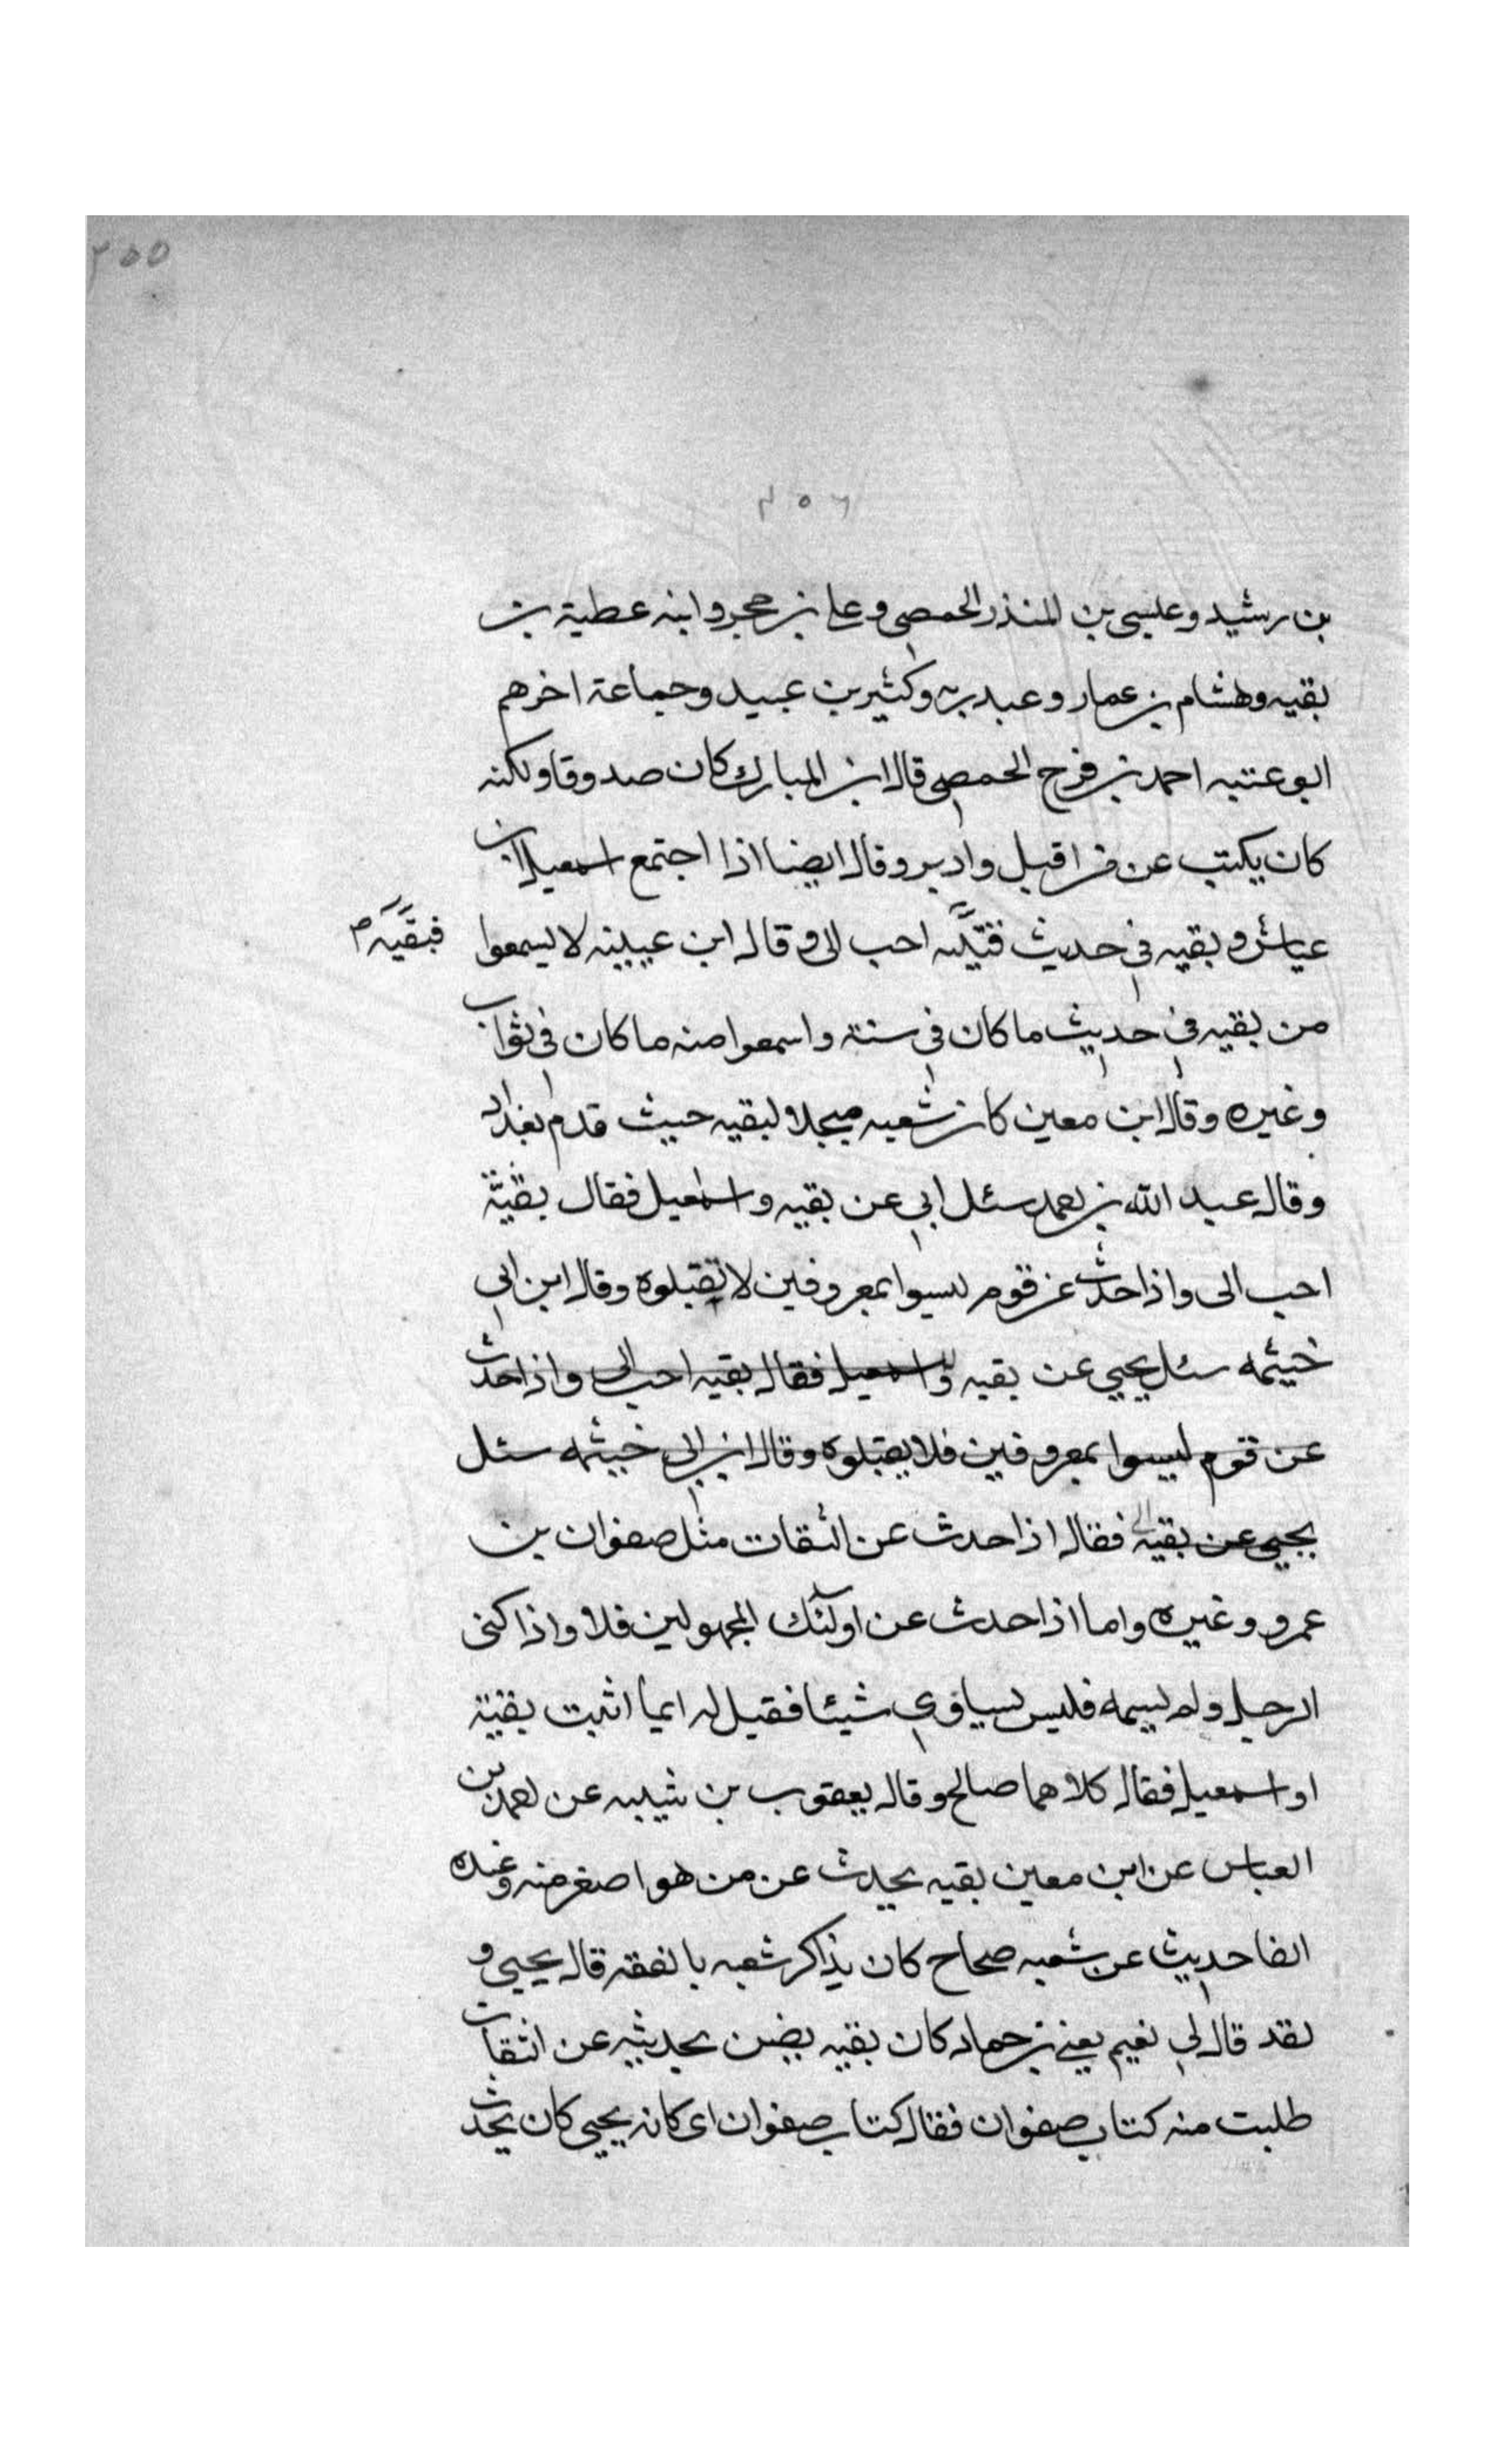 ٢٥٥
٢٥٦
بن رشيد وعيسى بن المنذر الحمصى وعلى بن حجر وابنه عطية بن
بقيه وهشام بن عمار وعبد ربه وكثير بن عبيد وجماعة اخرهم
ابو عتبه احمد بن فرج الحمصى قال ابن المبارك كان صدوقا ولكنه
كان يكتب عن من اقبل وادبر وقال ايضا اذا اجتمع اسمعيل بن
عياش وبقيه فى حديث احب الى وقال ابن عيينه لا يسمعوا
فبقيه م
من بقيه فى حديث ما كان فى سنة واسمعوا منه ما كان فى ثواب
وغيره وقال ابن معين كان شعبه مبجلا لبقيه حيث قدم بغداد
وقال عبد الله بن احمد سئل ابى عن بقيه واسمعيل فقال بقية
احب الى واذا حدث عن قوم ليسوا بمعروفين لا تقبلوه وقال ابن ابى
خيثمه سئل يحيى عن بقيه واسمعيل فقال بقيه احب الى واذا حدث
عن قوم ليسوا بمعروفين فلا يقبلوه وقال ابن ابى خيثمه سئل
يحيى عن بقيه فقال اذا حدث عن الثقات مثل صفوان بن
عمرو وغيره واما اذا حدث عن اولئك المجهولين فلا واذا كنى
الرجل ولم يسمه فليس يساوى شيئا فقيل له ايما اثبت بقية
او اسمعيل فقال كلاهما صالح وقال يعقوب بن شيبه عن احمد بن
العباس عن ابن معين بقيه يحدث عن من هو اصغر منه وعنده
الفا حديث عن شعبه صحاح كان يذاكر شعبه بالفقه قال يحيى و
لقد قال لى نعيم يعنى بن حماد كان بقيه يضن بحديثه عن الثقات
طلبت منه كتاب صفوان فقال كتاب صفوان اى كانه يحيى كان يحدث